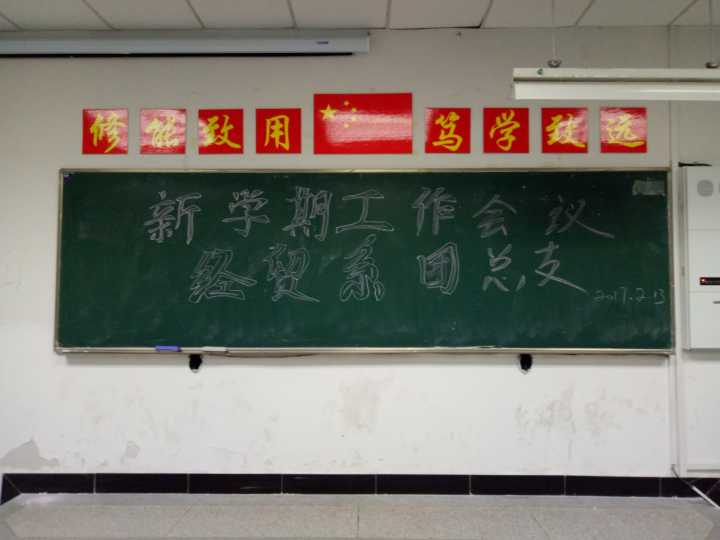 修能致用 笃学致远
新学期工作会议
经贸系团总支
2017.2.13